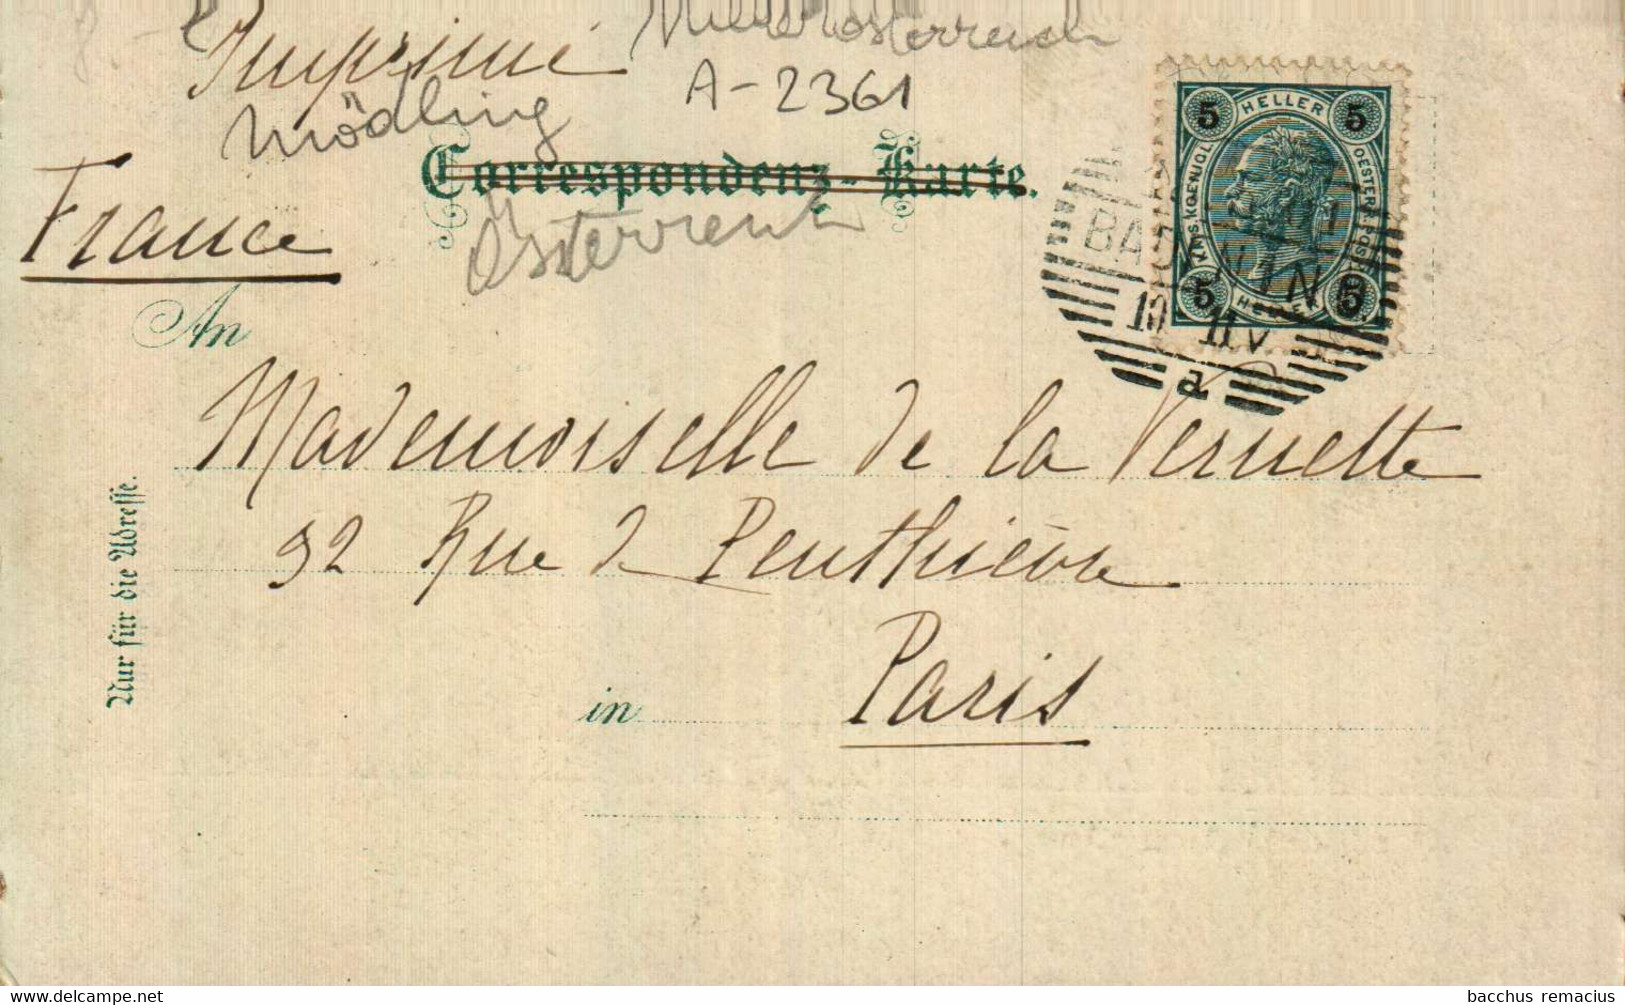 Imprimé
Niederösterreich
A-2361
Mödling
Correspondenz-Karte.
France
Österreich
5 HELLER 5
KAIS. KOENIGL. OESTERR. POST
5 HELLER 5
BA
10 11 V
a
An
Mademoiselle de la Vernette
92 Rue de Penthièvre
Nur für die Adresse.
in Paris
bacchus remacius